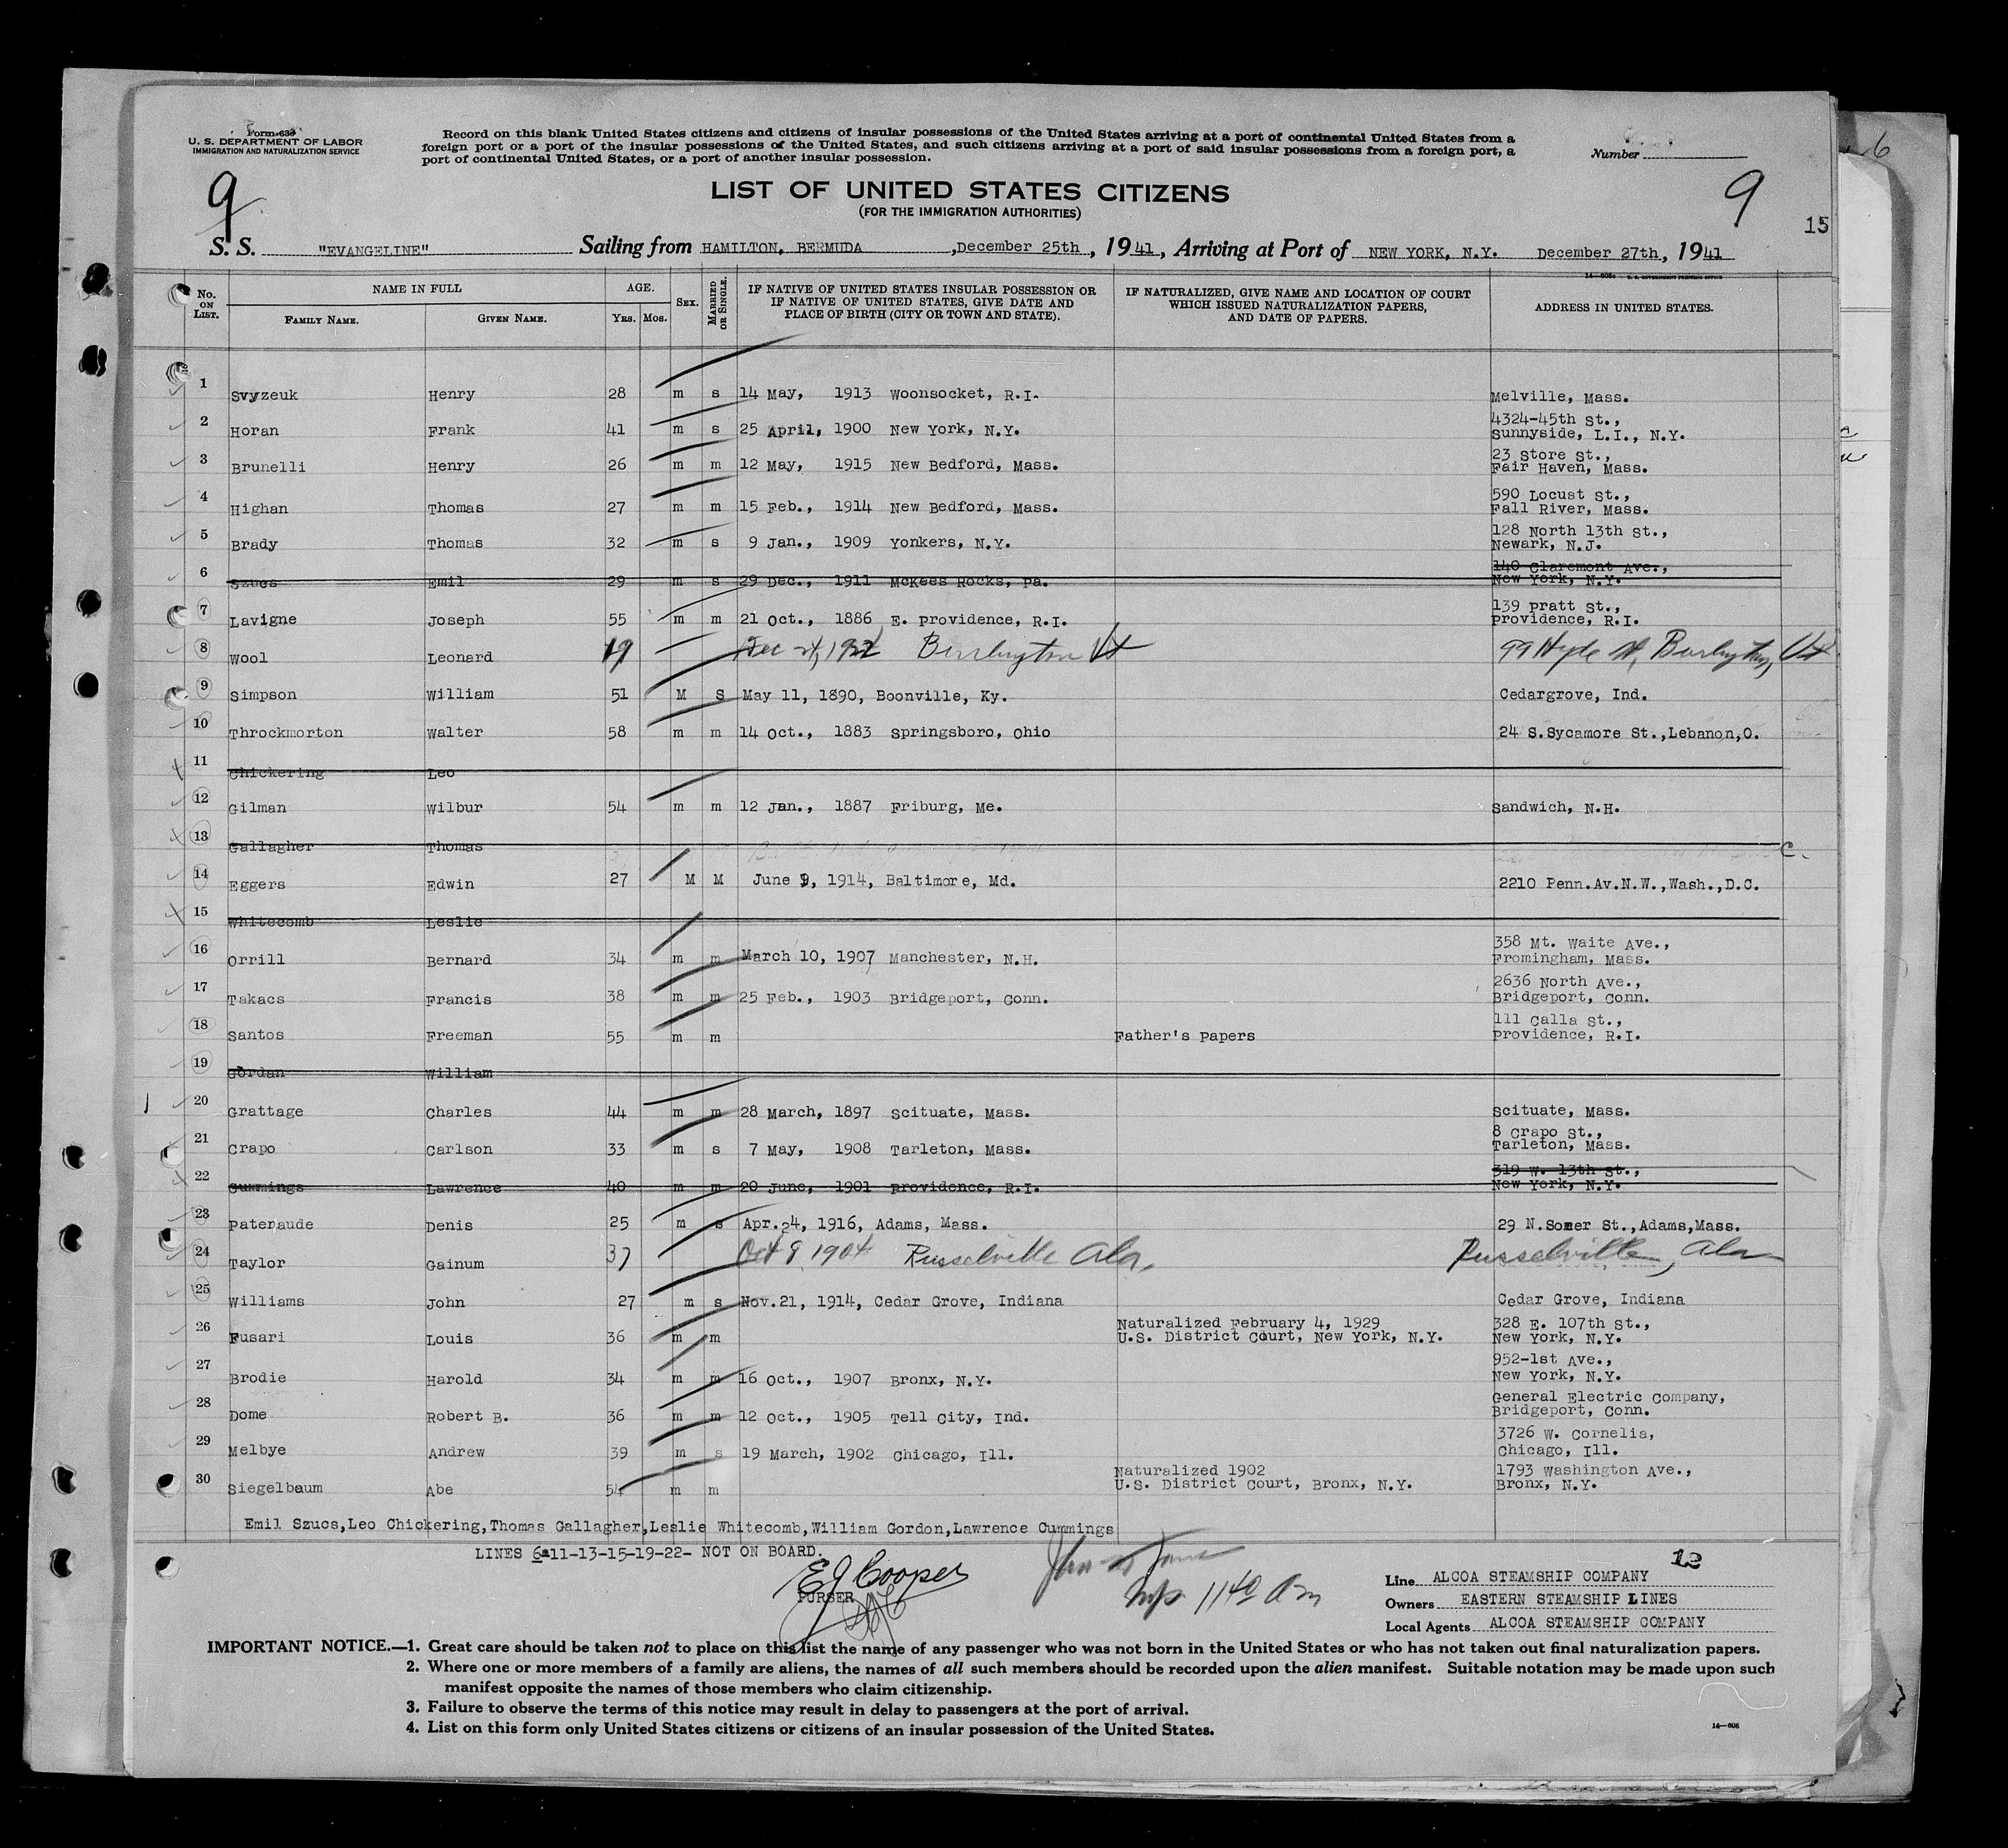 Form 630
U. S. DEPARTMENT OF LABOR
IMMIGRATION AND NATURALIZATION SERVICE
Record on this blank United States citizens and citizens of insular possessions of the United States arriving at a port of continental United States from a
foreign port or a port of the insular possessions of the United States, and such citizens arriving at a port of said insular possessions from a foreign port, a
port of continental United States, or a port of another insular possession.
Number
6
9
LIST OF UNITED STATES CITIZENS
9
(FOR THE IMMIGRATION AUTHORITIES)
15
S. S. "EVANGELINE" Sailing from HAMILTON, BERMUDA ,December 25th , 1941, Arriving at Port of NEW YORK, N.Y. December 27th, 1941
No. ON LIST. NAME IN FULL FAMILY NAME. GIVEN NAME. AGE. YRS. MOS. SEX. MARRIED OR SINGLE. IF NATIVE OF UNITED STATES INSULAR POSSESSION OR IF NATIVE OF UNITED STATES, GIVE DATE AND PLACE OF BIRTH (CITY OR TOWN AND STATE). IF NATURALIZED, GIVE NAME AND LOCATION OF COURT WHICH ISSUED NATURALIZATION PAPERS, AND DATE OF PAPERS. ADDRESS IN UNITED STATES.
1 Svyzeuk Henry 28 m s 14 May, 1913 Woonsocket, R.I. Melville, Mass.
2 Horan Frank 41 m s 25 April, 1900 New York, N.Y. 4324-45th St., Sunnyside, L.I., N.Y.
3 Brunelli Henry 26 m m 12 May, 1915 New Bedford, Mass. 23 Store St., Fair Haven, Mass.
4 Highan Thomas 27 m m 15 Feb., 1914 New Bedford, Mass. 590 Locust St., Fall River, Mass.
5 Brady Thomas 32 m s 9 Jan., 1909 Yonkers, N.Y. 128 North 13th St., Newark, N.J.
6 Szucs Emil 29 m s 29 Dec., 1911 McKees Rocks, Pa. 140 Claremont Ave., New York, N.Y.
7 Lavigne Joseph 55 m m 21 Oct., 1886 E. Providence, R.I. 139 Pratt St., Providence, R.I.
8 Wool Leonard 19 Dec 1922 Burlington Vt 99 Hyde St, Burlington, Vt
9 Simpson William 51 M S May 11, 1890, Boonville, Ky. Cedargrove, Ind.
10 Throckmorton Walter 58 m m 14 Oct., 1883 Springsboro, Ohio 24 S.Sycamore St.,Lebanon,O.
11 Chickering Leo
12 Gilman Wilbur 54 m m 12 Jan., 1887 Friburg, Me. Sandwich, N.H.
13 Gallagher Thomas C.
14 Eggers Edwin 27 M M June 9, 1914, Baltimore, Md. 2210 Penn.Av.N.W.,Wash.,D.C.
15 Whitecomb Leslie
16 Orrill Bernard 34 m m March 10, 1907 Manchester, N.H. 358 Mt. Waite Ave., Fromingham, Mass.
17 Takacs Francis 38 m m 25 Feb., 1903 Bridgeport, Conn. 2636 North Ave., Bridgeport, Conn.
18 Santos Freeman 55 m m Father's Papers 111 Calla St., Providence, R.I.
19 Gordan William
20 Grattage Charles 44 m m 28 March, 1897 Scituate, Mass. Scituate, Mass.
21 Crapo Carlson 33 m s 7 May, 1908 Tarleton, Mass. 8 Crapo St., Tarleton, Mass.
22 Cummings Lawrence 40 m m 20 June, 1901 Providence, R.I. 319 W. 13th St., New York, N.Y.
23 Patenaude Denis 25 m s Apr. 24, 1916, Adams, Mass. 29 N.Somer St.,Adams,Mass.
24 Taylor Gainum 37 Oct 9 1904 Russelville Ala. Russelville, Ala
25 Williams John 27 m s Nov.21, 1914, Cedar Grove, Indiana Cedar Grove, Indiana
26 Fusari Louis 36 m m Naturalized February 4, 1929 U.S. District Court, New York, N.Y. 328 E. 107th St., New York, N.Y.
27 Brodie Harold 34 m m 16 Oct., 1907 Bronx, N.Y. 952-1st Ave., New York, N.Y.
28 Dome Robert B. 36 m m 12 Oct., 1905 Tell City, Ind. General Electric Company, Bridgeport, Conn.
29 Melbye Andrew 39 m s 19 March, 1902 Chicago, Ill. 3726 W. Cornelia, Chicago, Ill.
30 Siegelbaum Abe 54 m m Naturalized 1902 U.S. District Court, Bronx, N.Y. 1793 Washington Ave., Bronx, N.Y.
Emil Szucs,Leo Chickering,Thomas Gallagher,Leslie Whitecomb,William Gordon,Lawrence Cummings
LINES 6-11-13-15-19-22- NOT ON BOARD.
EJ Cooper
PURSER
Insp 11 40 Am
12
Line ALCOA STEAMSHIP COMPANY
Owners EASTERN STEAMSHIP LINES
Local Agents ALCOA STEAMSHIP COMPANY
IMPORTANT NOTICE.—1. Great care should be taken not to place on this list the name of any passenger who was not born in the United States or who has not taken out final naturalization papers.
2. Where one or more members of a family are aliens, the names of all such members should be recorded upon the alien manifest. Suitable notation may be made upon such
manifest opposite the names of those members who claim citizenship.
3. Failure to observe the terms of this notice may result in delay to passengers at the port of arrival.
4. List on this form only United States citizens or citizens of an insular possession of the United States.
14—608